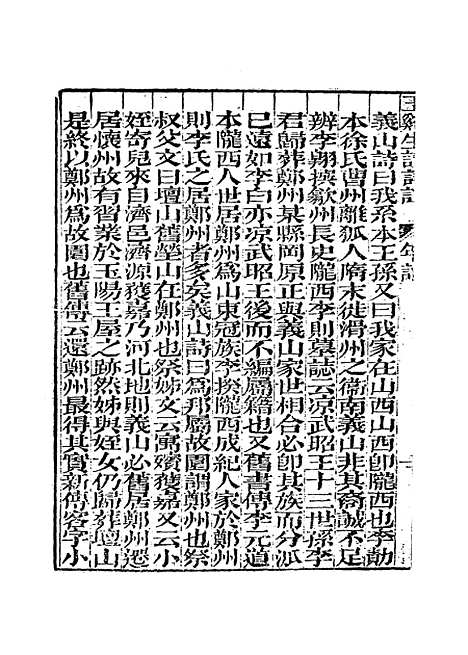 玉谿生詩詳註 年譜
義山詩曰我系本王孫又曰我家在山西山西卽隴西也李勣
本徐氏曹州離狐人隋末徙滑州之衞南義山非其裔誠不足
辨李翺撰歙州長史隴西李則墓誌云凉武昭王十三世孫李
君歸葬鄭州某縣岡原正與義山家世相合必卽其族而分派
已遠如李白亦凉武昭王後而不編屬籍也又舊書傳李元道
本隴西人世居鄭州爲山東冠族李揆隴西成紀人家於鄭州
則李氏之居鄭州者多矣義山詩曰爲邦屬故園謂鄭州也祭
叔父文曰壇山舊塋山在鄭州也祭姊文云寓殯獲嘉又云小
姪寄兒來自濟邑濟源獲嘉乃河北地則義山必舊居鄭州遷
居懷州故有習業於玉陽王屋之跡然姊與姪女仍歸葬壇山
是終以鄭州爲故園也舊傳云還鄭州最得其實新傳客字小